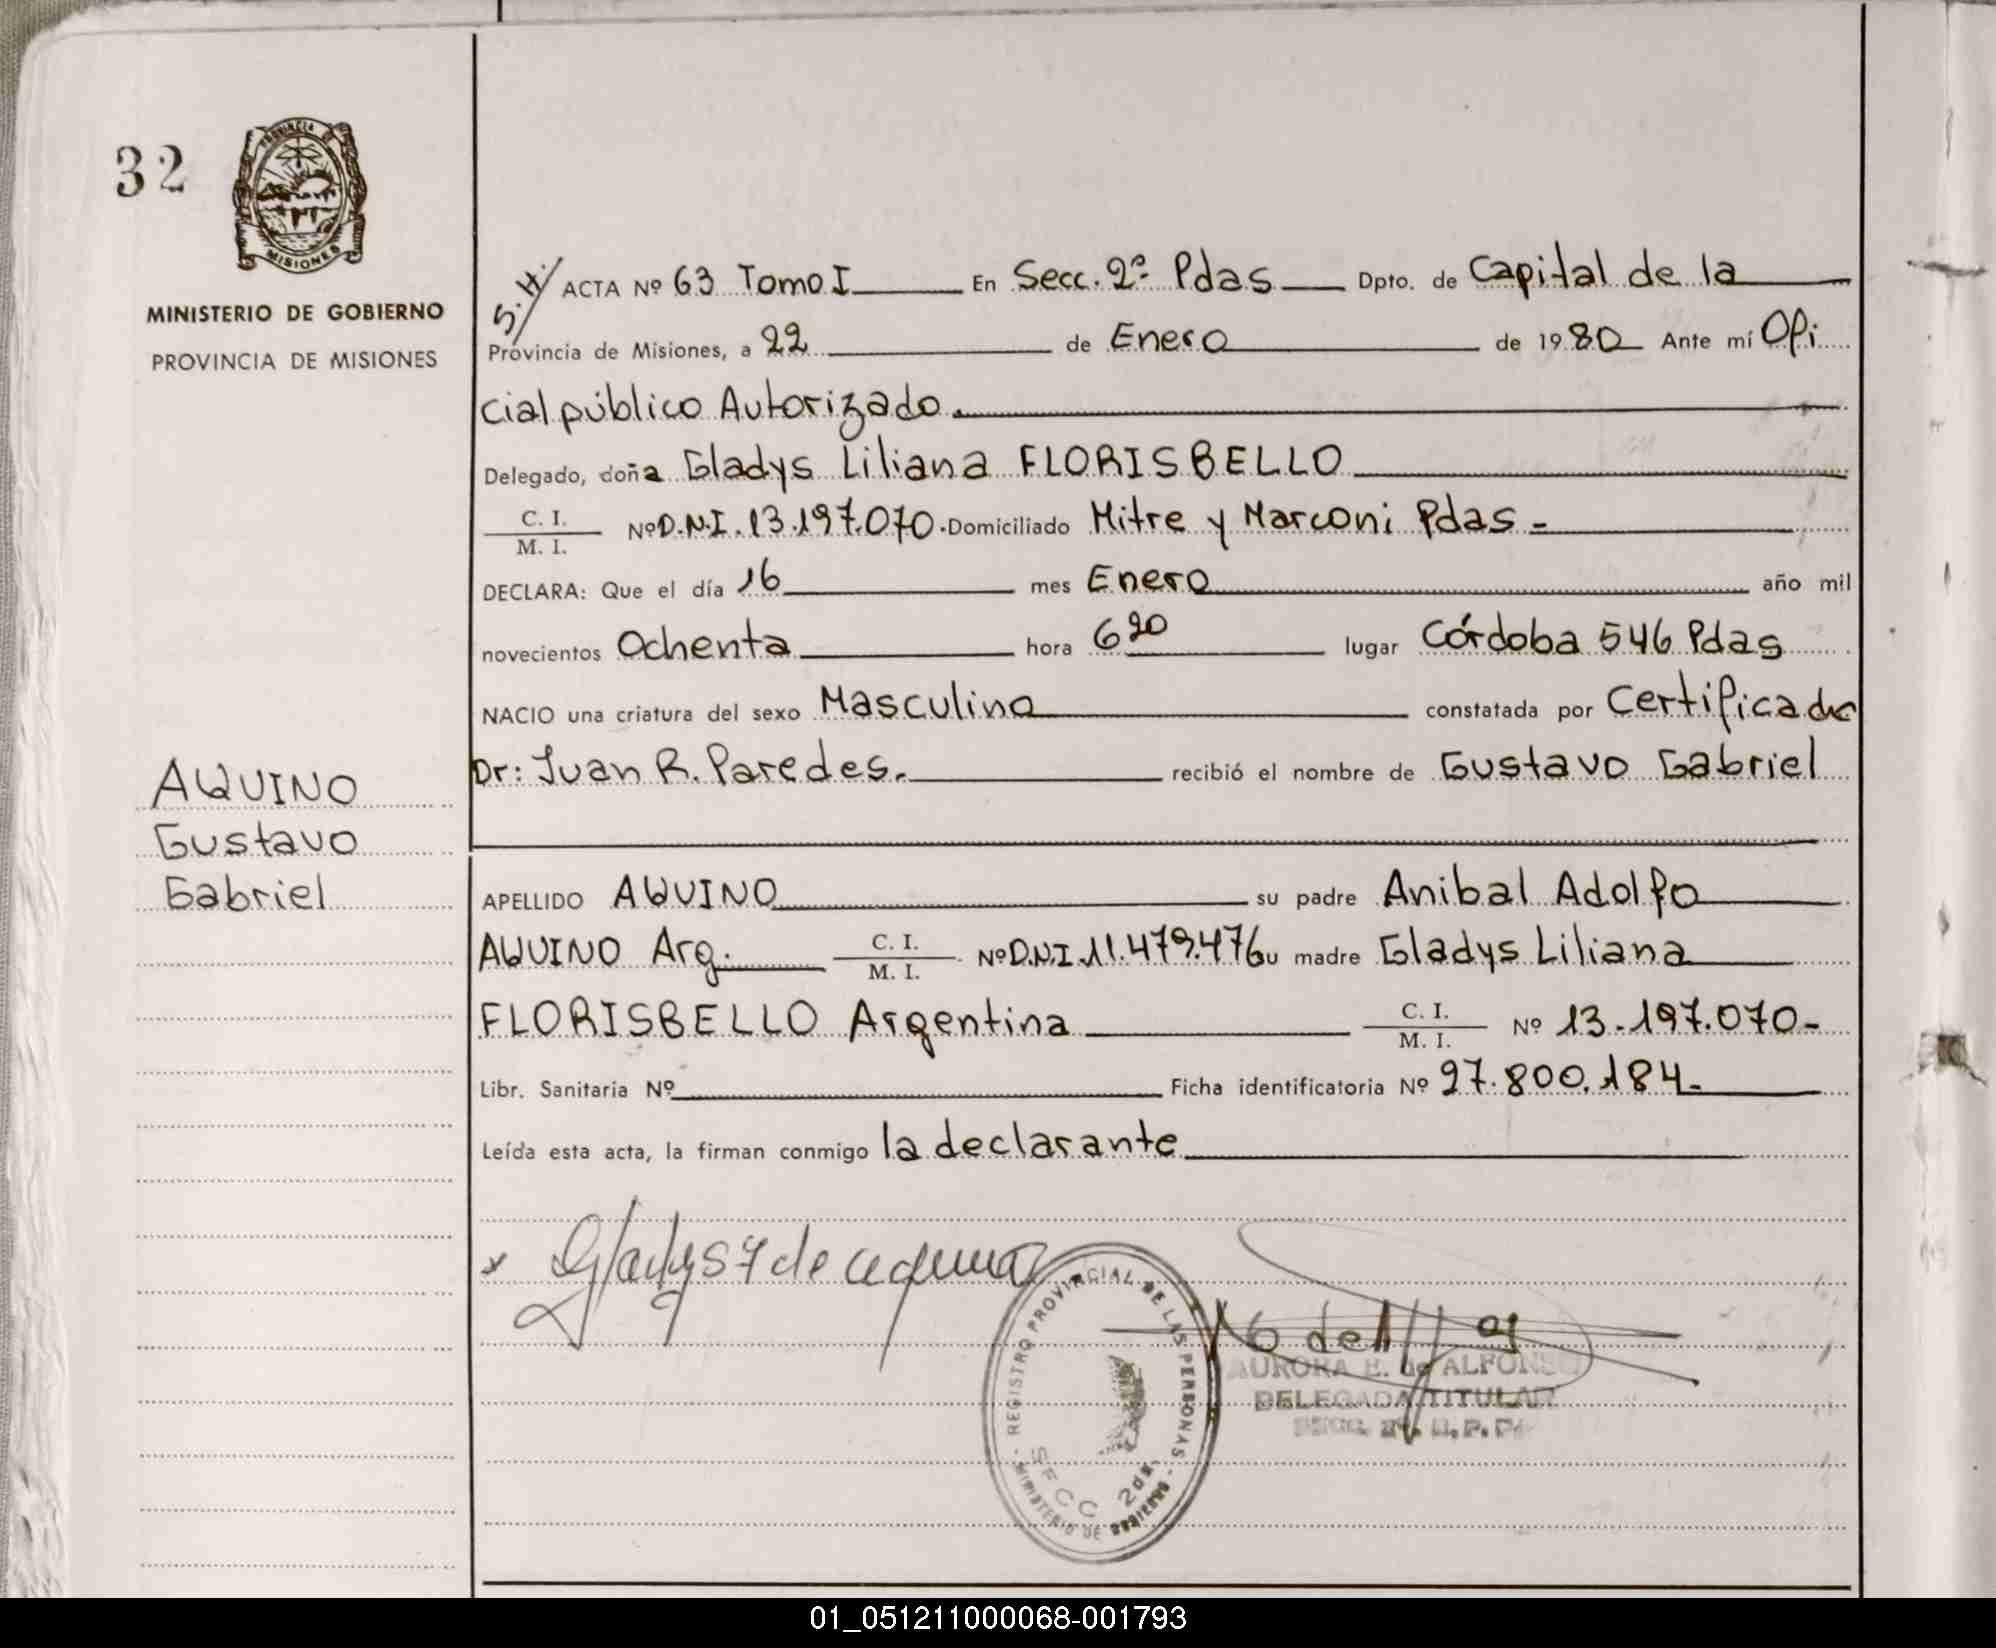 32
PROVINCIA
MISIONES
MINISTERIO DE GOBIERNO
PROVINCIA DE MISIONES
AQUINO
Gustavo
Gabriel
S.H/ ACTA Nº 63 Tomo I En Secc. 2ª Pdas Dpto. de Capital de la
Provincia de Misiones, a 22 de Enero de 1980 Ante mí Ofi
cial público Autorizado.
Delegado, doña Gladys Liliana FLORISBELLO
C. I. / M. I. Nº D.N.I. 13.197.070. Domiciliado Mitre y Marconi Pdas -
DECLARA: Que el día 16 mes Enero año mil
novecientos Ochenta hora 6 20 lugar Córdoba 546 Pdas
NACIO una criatura del sexo Masculino constatada por Certificado
Dr: Juan R. Paredes. recibió el nombre de Gustavo Gabriel
APELLIDO AQUINO su padre Anibal Adolfo
AQUINO Arg. C. I. / M. I. Nº D.N.I. 11.479.476 su madre Gladys Liliana
FLORISBELLO Argentina C. I. / M. I. Nº 13.197.070-
Libr. Sanitaria Nº Ficha identificatoria Nº 27.800.184-
Leída esta acta, la firman conmigo la declarante
REGISTRO PROVINCIAL DE LAS PERSONAS
MINISTERIO DE GOBIERNO
SECC 2da.
AURORA E. de ALFONSO
DELEGADA TITULAR
01_051211000068-001793